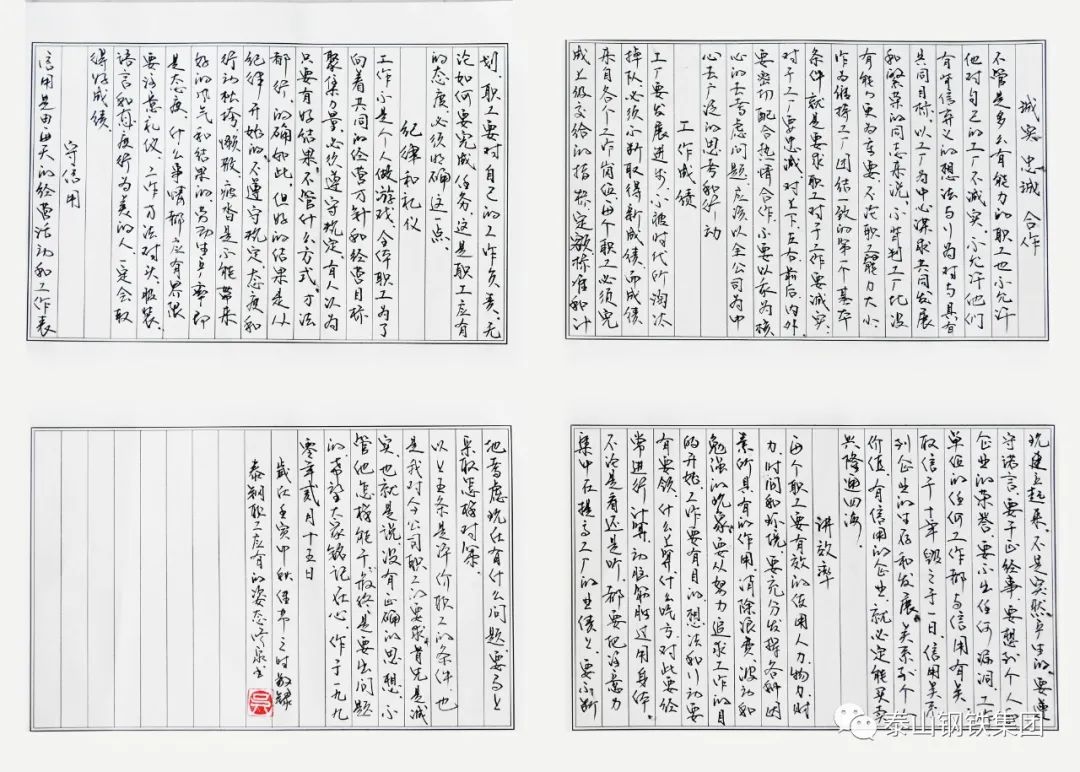 诚实 忠诚 合作
不管是多么有能力的职工也不允许
他对自己的工厂不诚实,不允许他们
有背信弃义的想法与行为对与具有
共同目标,以工厂为中心谋求共同发展
和繁荣的同志来说,不背判工厂比没
有能力更为重要,不论职工能力大小
作为维持工厂团结一致的第一个基本
条件就是要求职工对于工作要诚实,
对于工厂要忠诚,对上下左右前后内外
要密切配合热情合作,不要以我为核
心的去考虑问题,应该以全公司为中
心去广泛的思考和行动
工作成绩
工厂要发展进步,不被时代所淘汰
掉队必须不断取得新成绩而成绩
来自各个工作岗位,每个职工必须完
成上级交给的指标定额标准和计
划,职工要对自己的工作负责,无
论如何要完成任务这是职工应有
的态度必须明确这一点。
纪律和礼仪
工作不是个人做游戏,全体职工为了
向着共同的经营方针和经营目标
聚集力量,必须遵守规定,有人以为
只要有好结果,不管什么方式,方法
都行,的确如此,但好的结果是从
纪律开始的,不遵守规定态度和
行动松垮懒散、疲沓是不能带来
好的风气和结果的,劳动生产率即
是态度,什么事情都应有界限
要注意礼仪,工作方法对头,服装、
语言和态度行为美的人,一定会取
得好成绩
守信用
信用是由每天的经营活动和工作表
现建立起来,不是突然产生的,要遵
守诺言,要干正经事,要想到个人
企业的荣誉要不出任何漏洞,工作
单位的任何工作都与信用有关,
取信于十年毁之于一日,信用关系
到企业的生存和发展,关系到个人
价值,有信用的企业,就必定能买卖
兴隆通四海。
讲效率
每个职工要有效的使用人力、物力、财
力、时间和环境,要充分发挥各种因
素所具有的作用,消除浪费、波动和
勉强的现象,要从努力追求工作的目
的开始,工作要有目的,想法和行动要
有要领,什么上算什么吃亏,对此要经
常进行计算,动脑筋胜过用身体,
不论是看还是听,都要把注意力
集中在提高工厂的生绩上,要不断
地考虑现在有什么问题要马上
采取怎样对策。
以上五条是评价职工的条件,也
是我对全公司职工的要求,首先是诚
实,也就是说没有正确的思想,不
管他怎样能干最终是要出问题
的,希望大家铭记在心,作于一九九
零年贰月十五日
岁在壬寅中秋佳节之时敬录
泰钢职工应有的姿态
泰山钢铁集团